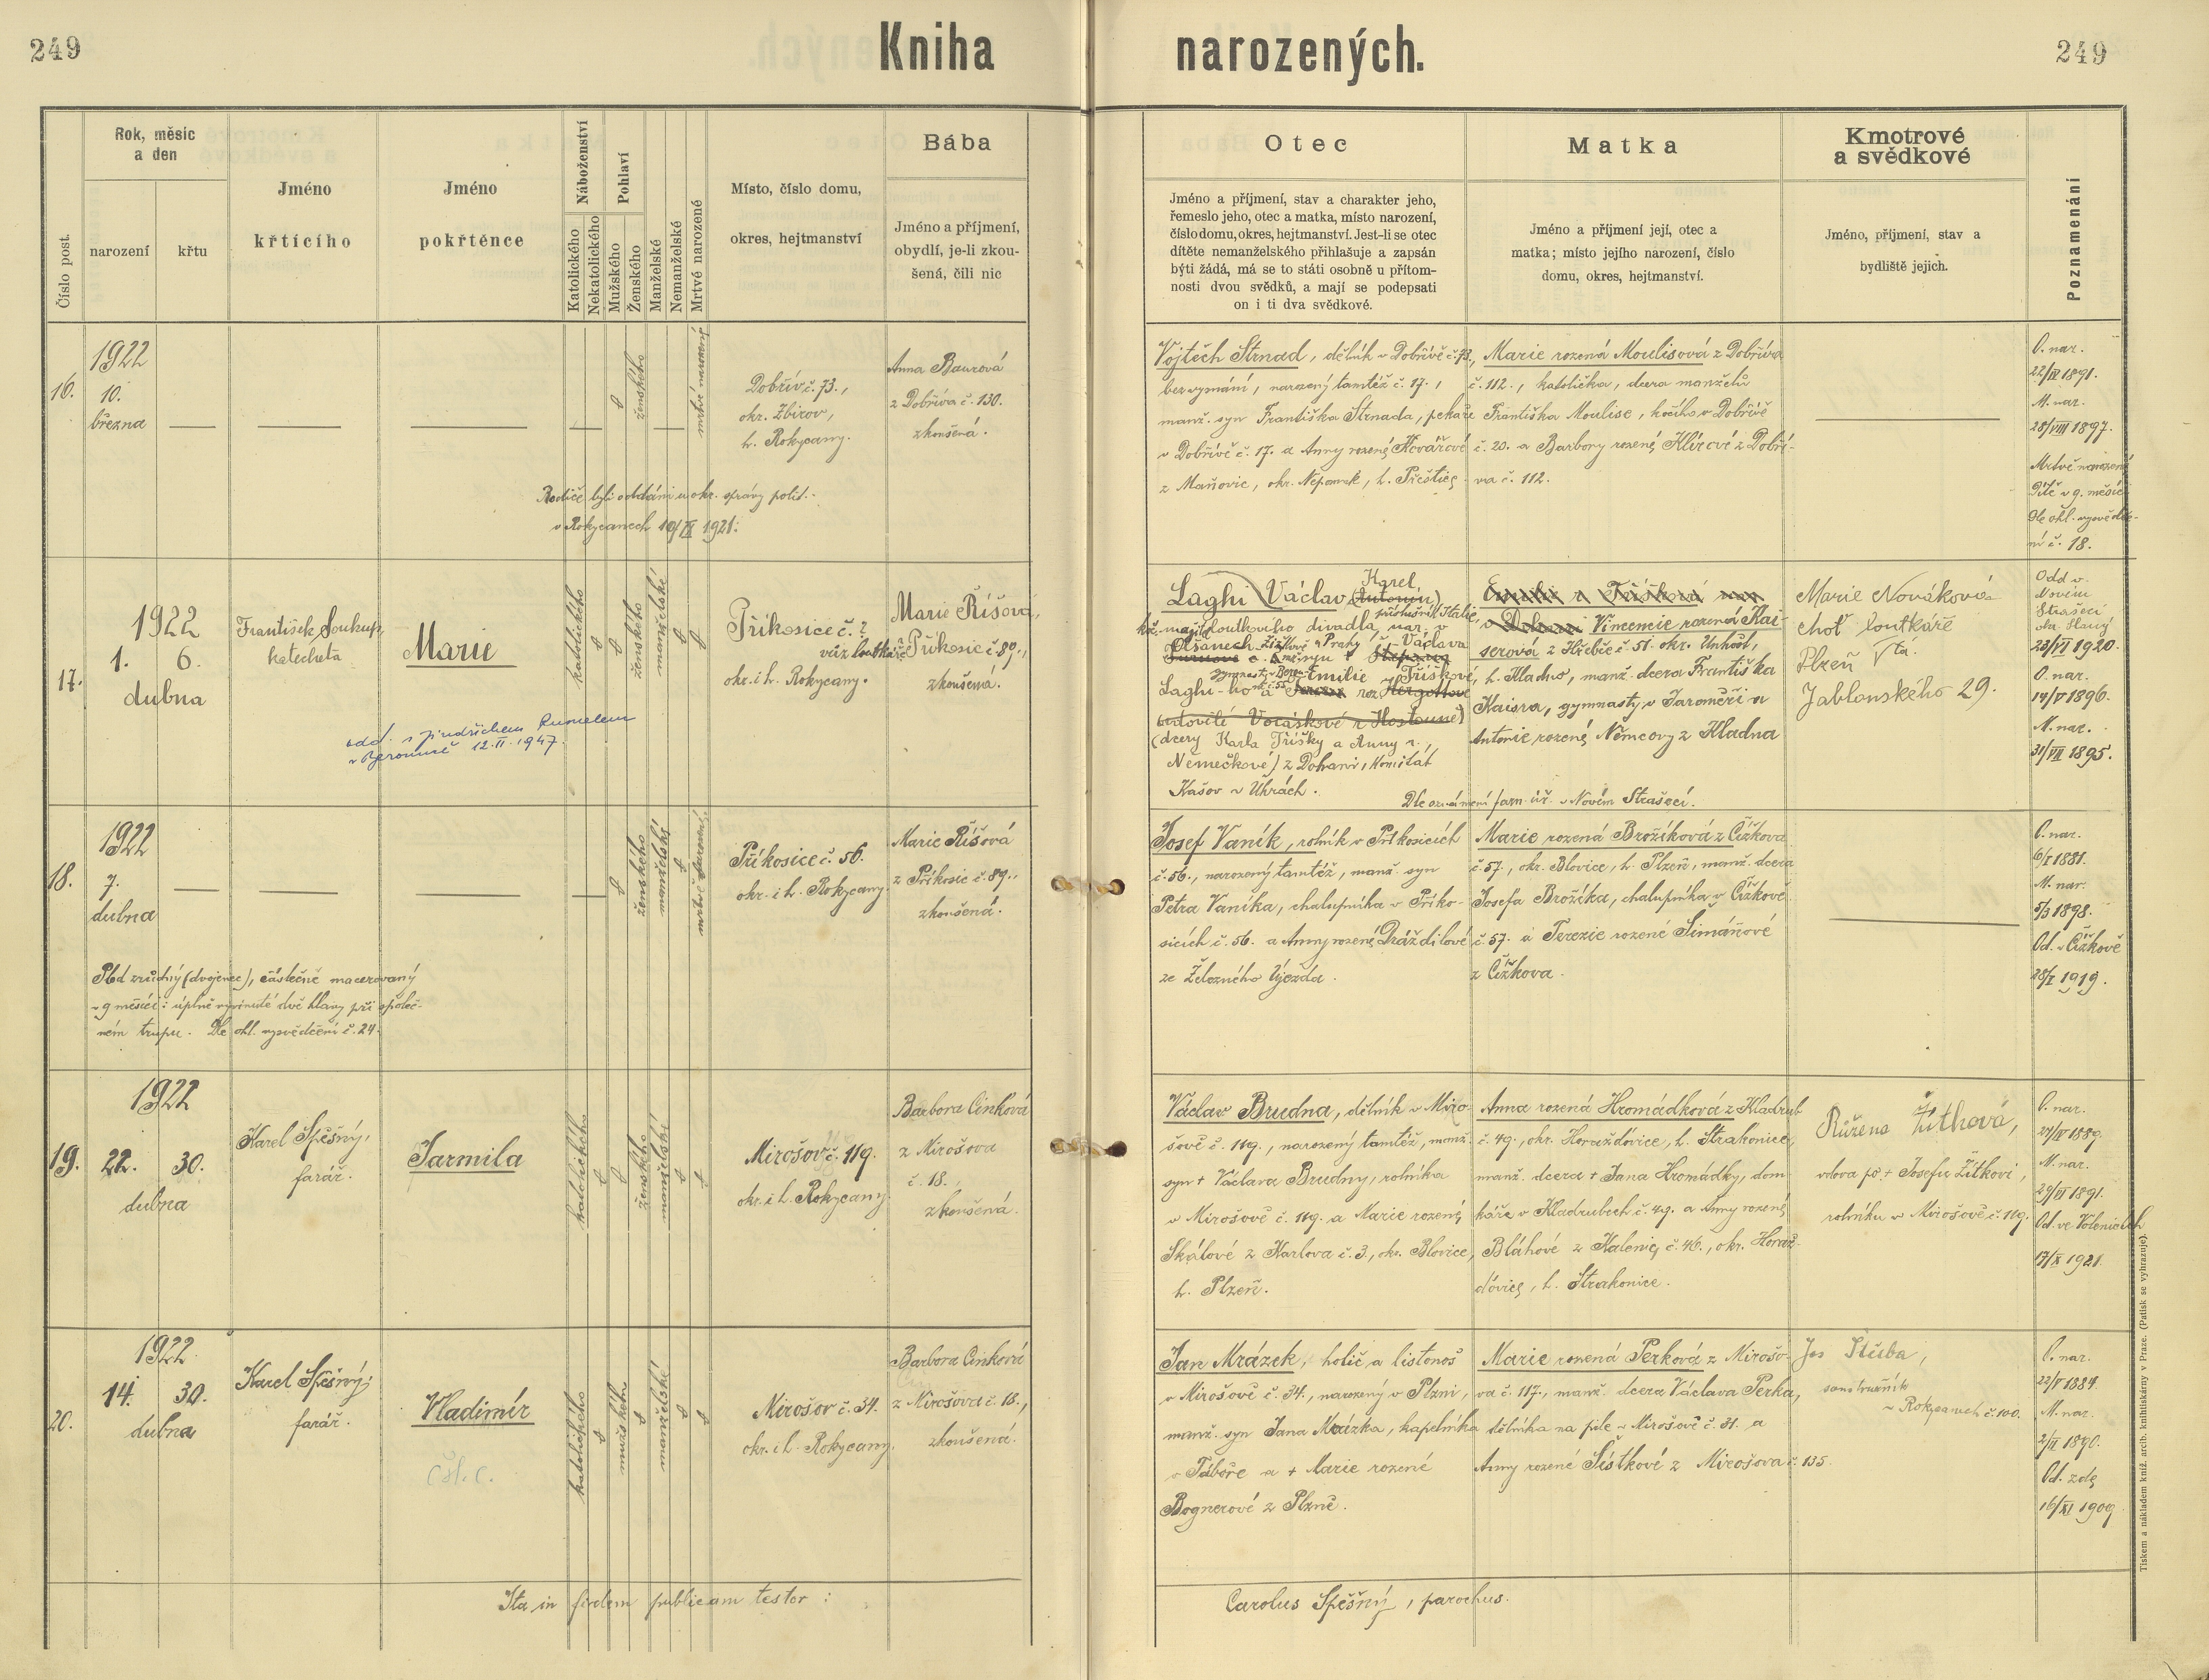 249
Kniha narozených.
249
Číslo post.
Rok, měsíc
a den
narození
křtu
Jméno
křtícího
Jméno
pokřtěnce
Náboženství
Katolického
Nekatolického
Pohlaví
Mužského
Ženského
Manželské
Nemanželské
Mrtvé narozené
Místo, číslo domu,
okres, hejtmanství
Bába
Jméno a příjmení,
obydlí, je-li zkou-
šená, čili nic
Otec
Jméno a příjmení, stav a charakter jeho,
řemeslo jeho, otec a matka, místo narození,
číslo domu, okres, hejtmanství. Jest-li se otec
dítěte nemanželského přihlašuje a zapsán
býti žádá, má se to státi osobně u přítom-
nosti dvou svědků, a mají se podepsati
on i ti dva svědkové.
Matka
Jméno a příjmení její, otec a
matka; místo jejího narození, číslo
domu, okres, hejtmanství.
Kmotrové
a svědkové
Jméno, příjmení, stav a
bydliště jejich.
Poznamenání
16.
1922
10.
března
ženského
mrtvě narozený
Dobřív č. 73.,
okr. Zbirov,
h. Rokycany.
Anna Baurová
z Dobříva č. 130.
zkoušená.
Rodiče byli oddáni u okr. správy polit.
v Rokycanech 10/IX 1921.
Vojtěch Strnad, dělník v Dobřívě č. 73,
bez vyznání, narozený tamtéž č. 17.,
manž. syn Františka Strnada, pekaře
v Dobřívě č. 17. a Anny rozené Kovářové
z Maňovic, okr. Nepomuk, h. Přeštice
Marie rozená Moulisová z Dobříva
č. 112., katolička, dcera manželů
Františka Moulise, kočího v Dobřívě
č. 20. a Barbory rozené z Dobří-
va č. 112.
O. nar.
22/IV 1891.
M. nar.
28/VIII 1897.
Mrtvě narozené
Dítě v 9. měsíci
dle ohl. vysvědče-
ní č. 18.
17.
1922
1. 6.
dubna
František Soukup,
katecheta
Marie
katolického
ženského
manželské
Příkosice č. ?
vůz loutkáře
okr. i h. Rokycany.
Marie Říšová,
z Příkosic č. 89.,
zkoušená.
odd. s Jindřichem Rumelem
v Berouně 12.II.1947.
Laghi Václav (Antonín) Karel,
příslušník Italie,
maj. loutkového divadla, nar. v
Olšanech Žižkově u Prahy Václava
Laghi-ho a Emilie Tříškové,
(dcery Karla Tříšky a Anny r.
Němečkové) z Dohani, Komitát
Kašov v Uhrách.
Vincencie rozená Kai-
serová z Hřebče č. 51. okr. Unhošť,
h. Kladno, manž. dcera Františka
Kaisra, gymnasty v Jaroměři a
Antonie rozené Němcovy z Kladna
Dle oznámení farn. úř. v Novém Strašecí.
Marie Nováková
choť loutkáře
Plzeň
Jablonského 29.
Odd v
Novém
Strašecí
okr. Slaný
23/VI 1920.
O. nar.
14/V 1896.
M. nar.
31/VII 1895.
18.
1922
7.
dubna
ženského
manželské
mrtvě narozené
Příkosice č. 56.
okr. i h. Rokycany.
Marie Říšová
z Příkosic č. 89.,
zkoušená.
Plod zrůdný (dvojenec), částečně macerovaný
v 9 měsíci: úplně vyvinuté dvě hlavy při společ-
ném trupu. Dle ohl. vysvědčení č. 24.
Josef Vaník, rolník v Příkosicích
č. 56., narozený tamtéž, manž. syn
Petra Vaníka, chalupníka v Příko-
sicích č. 56. a Anny rozené Dráždilové
ze Železného Újezda.
Marie rozená Brožíková z Čížkova
č. 57., okr. Blovice, h. Plzeň, manž. dcera
Josefa Brožíka, chalupníka v Čížkově
č. 57. a Terezie rozené Šimáňové
z Čížkova.
O. nar.
6/I 1881.
M. nar.
5/3 1898.
Od. v Čížkově
28/I 1919.
19.
1922
22. 30.
dubna
Karel Spěšný,
farář.
Jarmila
katolického
ženského
manželské
Mirošov č. 119.
okr. i h. Rokycany.
Barbora Cinková
z Mirošova
č. 18.,
zkoušená.
Václav Brudna, dělník v Miro-
šově č. 119., narozený tamtéž, manž.
syn + Václava Brudny, rolníka
v Mirošově č. 119. a Marie rozené
Skálové z Karlova č. 3., okr. Blovice,
h. Plzeň.
Anna rozená Hromádková z Kladrub
č. 49., okr. Horažďovice, h. Strakonice,
manž. dcera + Jana Hromádky, dom-
káře v Kladrubech č. 49. a Anny rozené
Bláhové z Kalenic č. 46., okr. Horaž-
ďovice, h. Strakonice.
Růžena Žitková,
vdova po + Josefu Žitkovi,
rolníku v Mirošově č. 119.
O. nar.
27/IV 1889
M. nar.
29/VI 1891.
Od. ve Volenicích
17/X 1921.
20.
1922.
14. 30.
dubna
Karel Spěšný,
farář.
Vladimír
čsl. c.
katolického
mužského
manželské
Mirošov č. 34.
okr. i h. Rokycany.
Barbora Cinková
z Mirošova č. 18.,
zkoušená.
Jan Mrázek, holič a listonoš
v Mirošově č. 34., narozený v Plzni,
manž. syn Jana Mrázka, kapelníka
v Táboře a + Marie rozené
Bognerové z Plzně.
Marie rozená Perková z Mirošo-
va č. 117., manž. dcera Václava Perka,
dělníka na pile v Mirošově č. 31. a
Anny rozené Šístkové z Mirošova č. 135.
Jos Stuba,
v Rokycanech č. 100.
O. nar.
22/V 1884.
M. nar.
2/II 1890.
Od. zde
16/XI 1909.
Ita in fidem publicam testor:
Carolus Spěšný, parochus.
Tiskem a nákladem kníž. arcib. knihtiskárny v Praze. (Patisk se vyhrazuje).